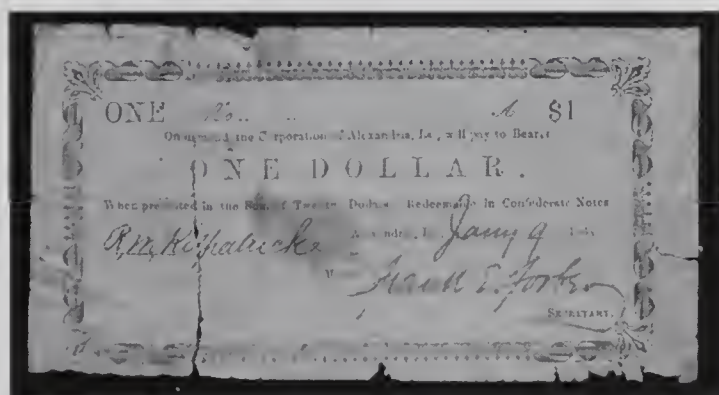 ONE No. A $1
On demand the Corporation of Alexandria, La., will pay to Bearer
ONE DOLLAR.
When presented in the Sum of Twenty Dollars Redeemable in Confederate Notes
R. M. Kilpatrick Alexandria, La. Jany 9
M
SECRETARY.